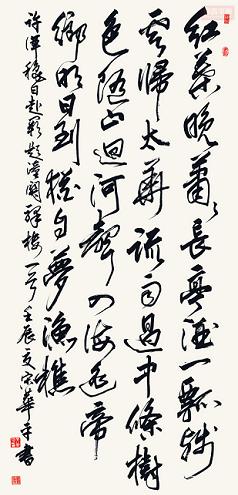 紅葉晚蕭々長亭酒一瓢残
雲歸太華疏雨過中條樹
色随山迴河聲入海遥帝
鄉明日到猶自夢漁樵
許渾秋日赴闕題潼關驛樓一首壬辰夏宋華平書